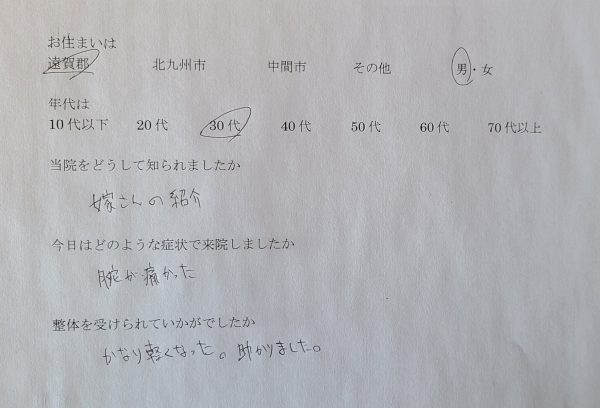 お住まいは
遠賀郡 北九州市 中間市 その他 男・女
年代は
10代以下 20代 30代 40代 50代 60代 70代以上
当院をどうして知られましたか
嫁さんの紹介
今日はどのような症状で来院しましたか
腕が痛かった
整体を受けられていかがでしたか
かなり軽くなった。助かりました。